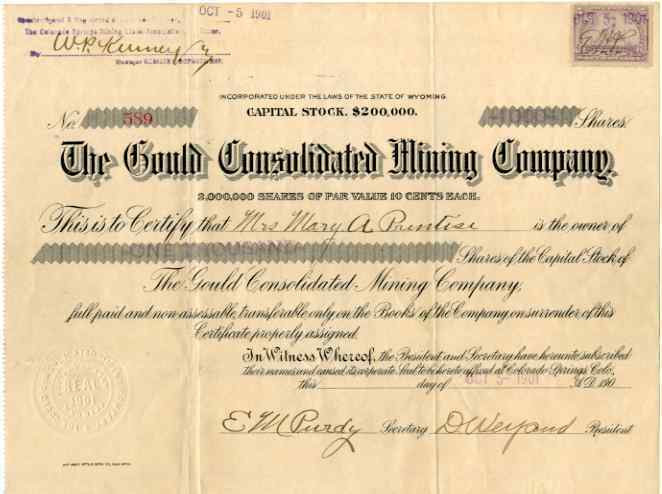 OCT -5 1901
The Colorado Springs Mining Stock Association
By W.P. Kinney
Manager
OCT 5- 1901
INCORPORATED UNDER THE LAWS OF THE STATE OF WYOMING
CAPITAL STOCK. $200,000.
No. 589 1000 Shares.
The Gould Consolidated Mining Company.
2,000,000 SHARES OF PAR VALUE 10 CENTS EACH.
This is to Certify that Mrs Mary A Prentise is the owner of
ONE THOUSAND Shares of the Capital Stock of
The Gould Consolidated Mining Company,
full paid and non-assessable, transferable only on the Books of the Company on surrender of this
Certificate properly assigned.
In Witness Whereof, the President and Secretary have hereunto subscribed
their names and caused its corporate Seal to be hereto affixed at Colorado Springs, Colo,
this day of OCT 5- 1901 A.D. 190
SEAL
1901
E M Purdy Secretary D Weyand President